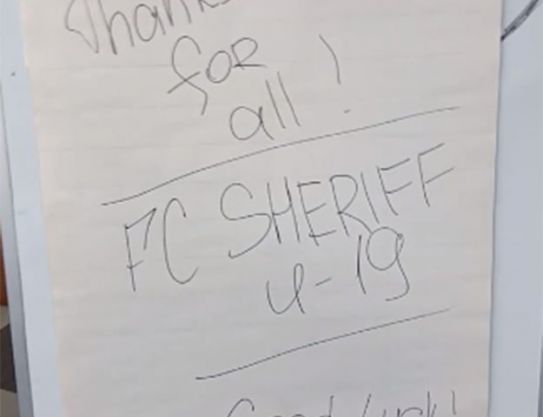 Thanks
for
all!
FC SHERIFF
U-19
Good luck!